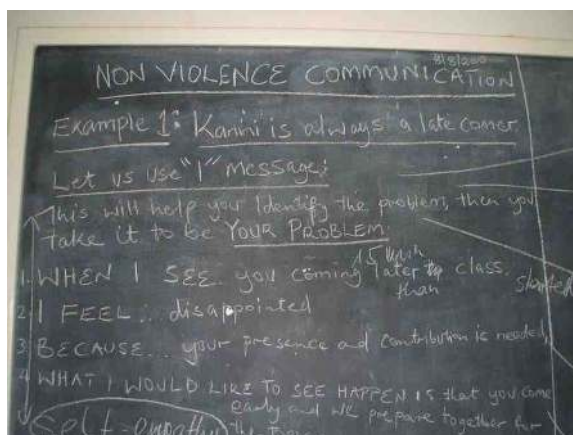 8/8/200
NON VIOLENCE COMMUNICATION
Example 1: Kanini is always a late comer.
Let us use "I" Message;
This will help you Identify the problem, then you
take it to be YOUR PROBLEM.
15 min
1. WHEN I SEE.. you coming later to class.
than started
2. I FEEL... disappointed
3. BECAUSE... your presence and contribution is needed,
4. WHAT I WOULD LIKE TO SEE HAPPEN IS that you come
early and we prepare together for
Self-empathy the